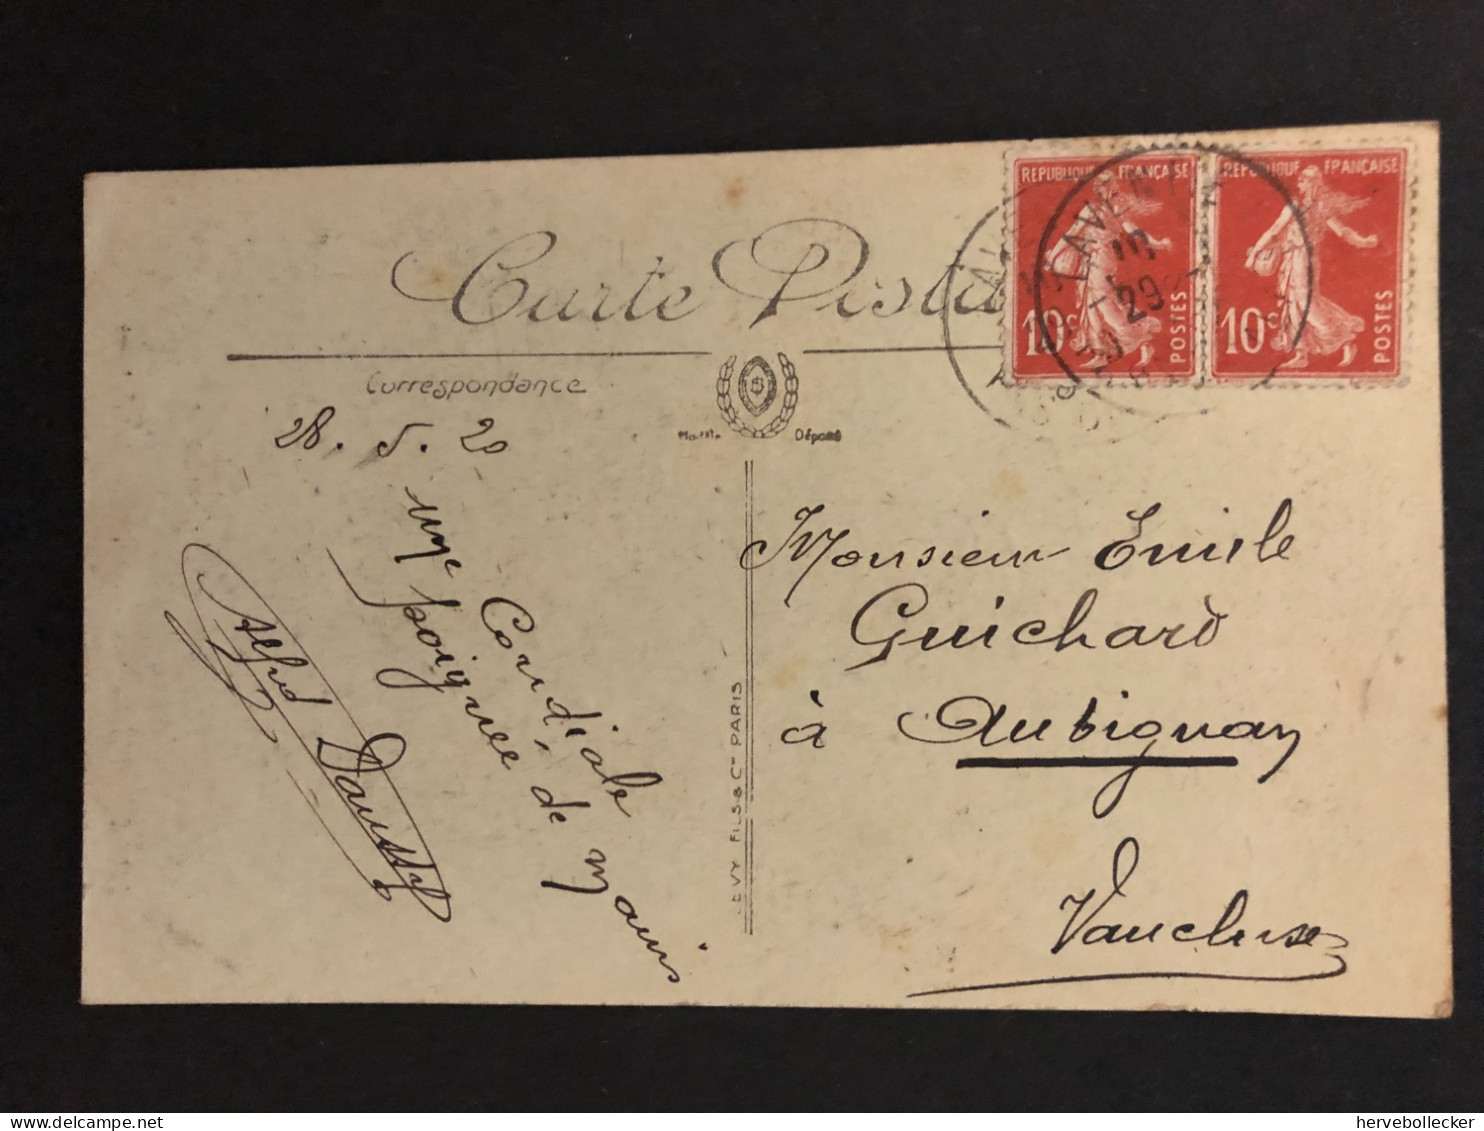 Carte Postale
Correspondance
Modèle Déposé
28. 5. 20
Une
Cordiale
poignée de
mains
Alfred
LEVY FILS & Cie PARIS
Monsieur Emile
Guichard
à Aubignan
Vaucluse
REPUBLIQUE FRANÇAISE
10c POSTES
REPUBLIQUE FRANÇAISE
10c POSTES
LAVENTIE
29
hervebollecker